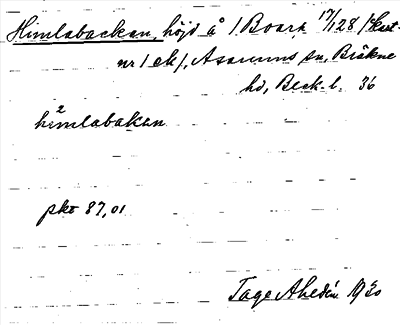 Himlabacken, höjd å 1 Boark 17/128 (kart-
nr 1 ek), Asarums sn, Bräkne
hd, Bleck. l. 36
hi2mlabakan
pkt 87,01
Tage Ahldén 1930